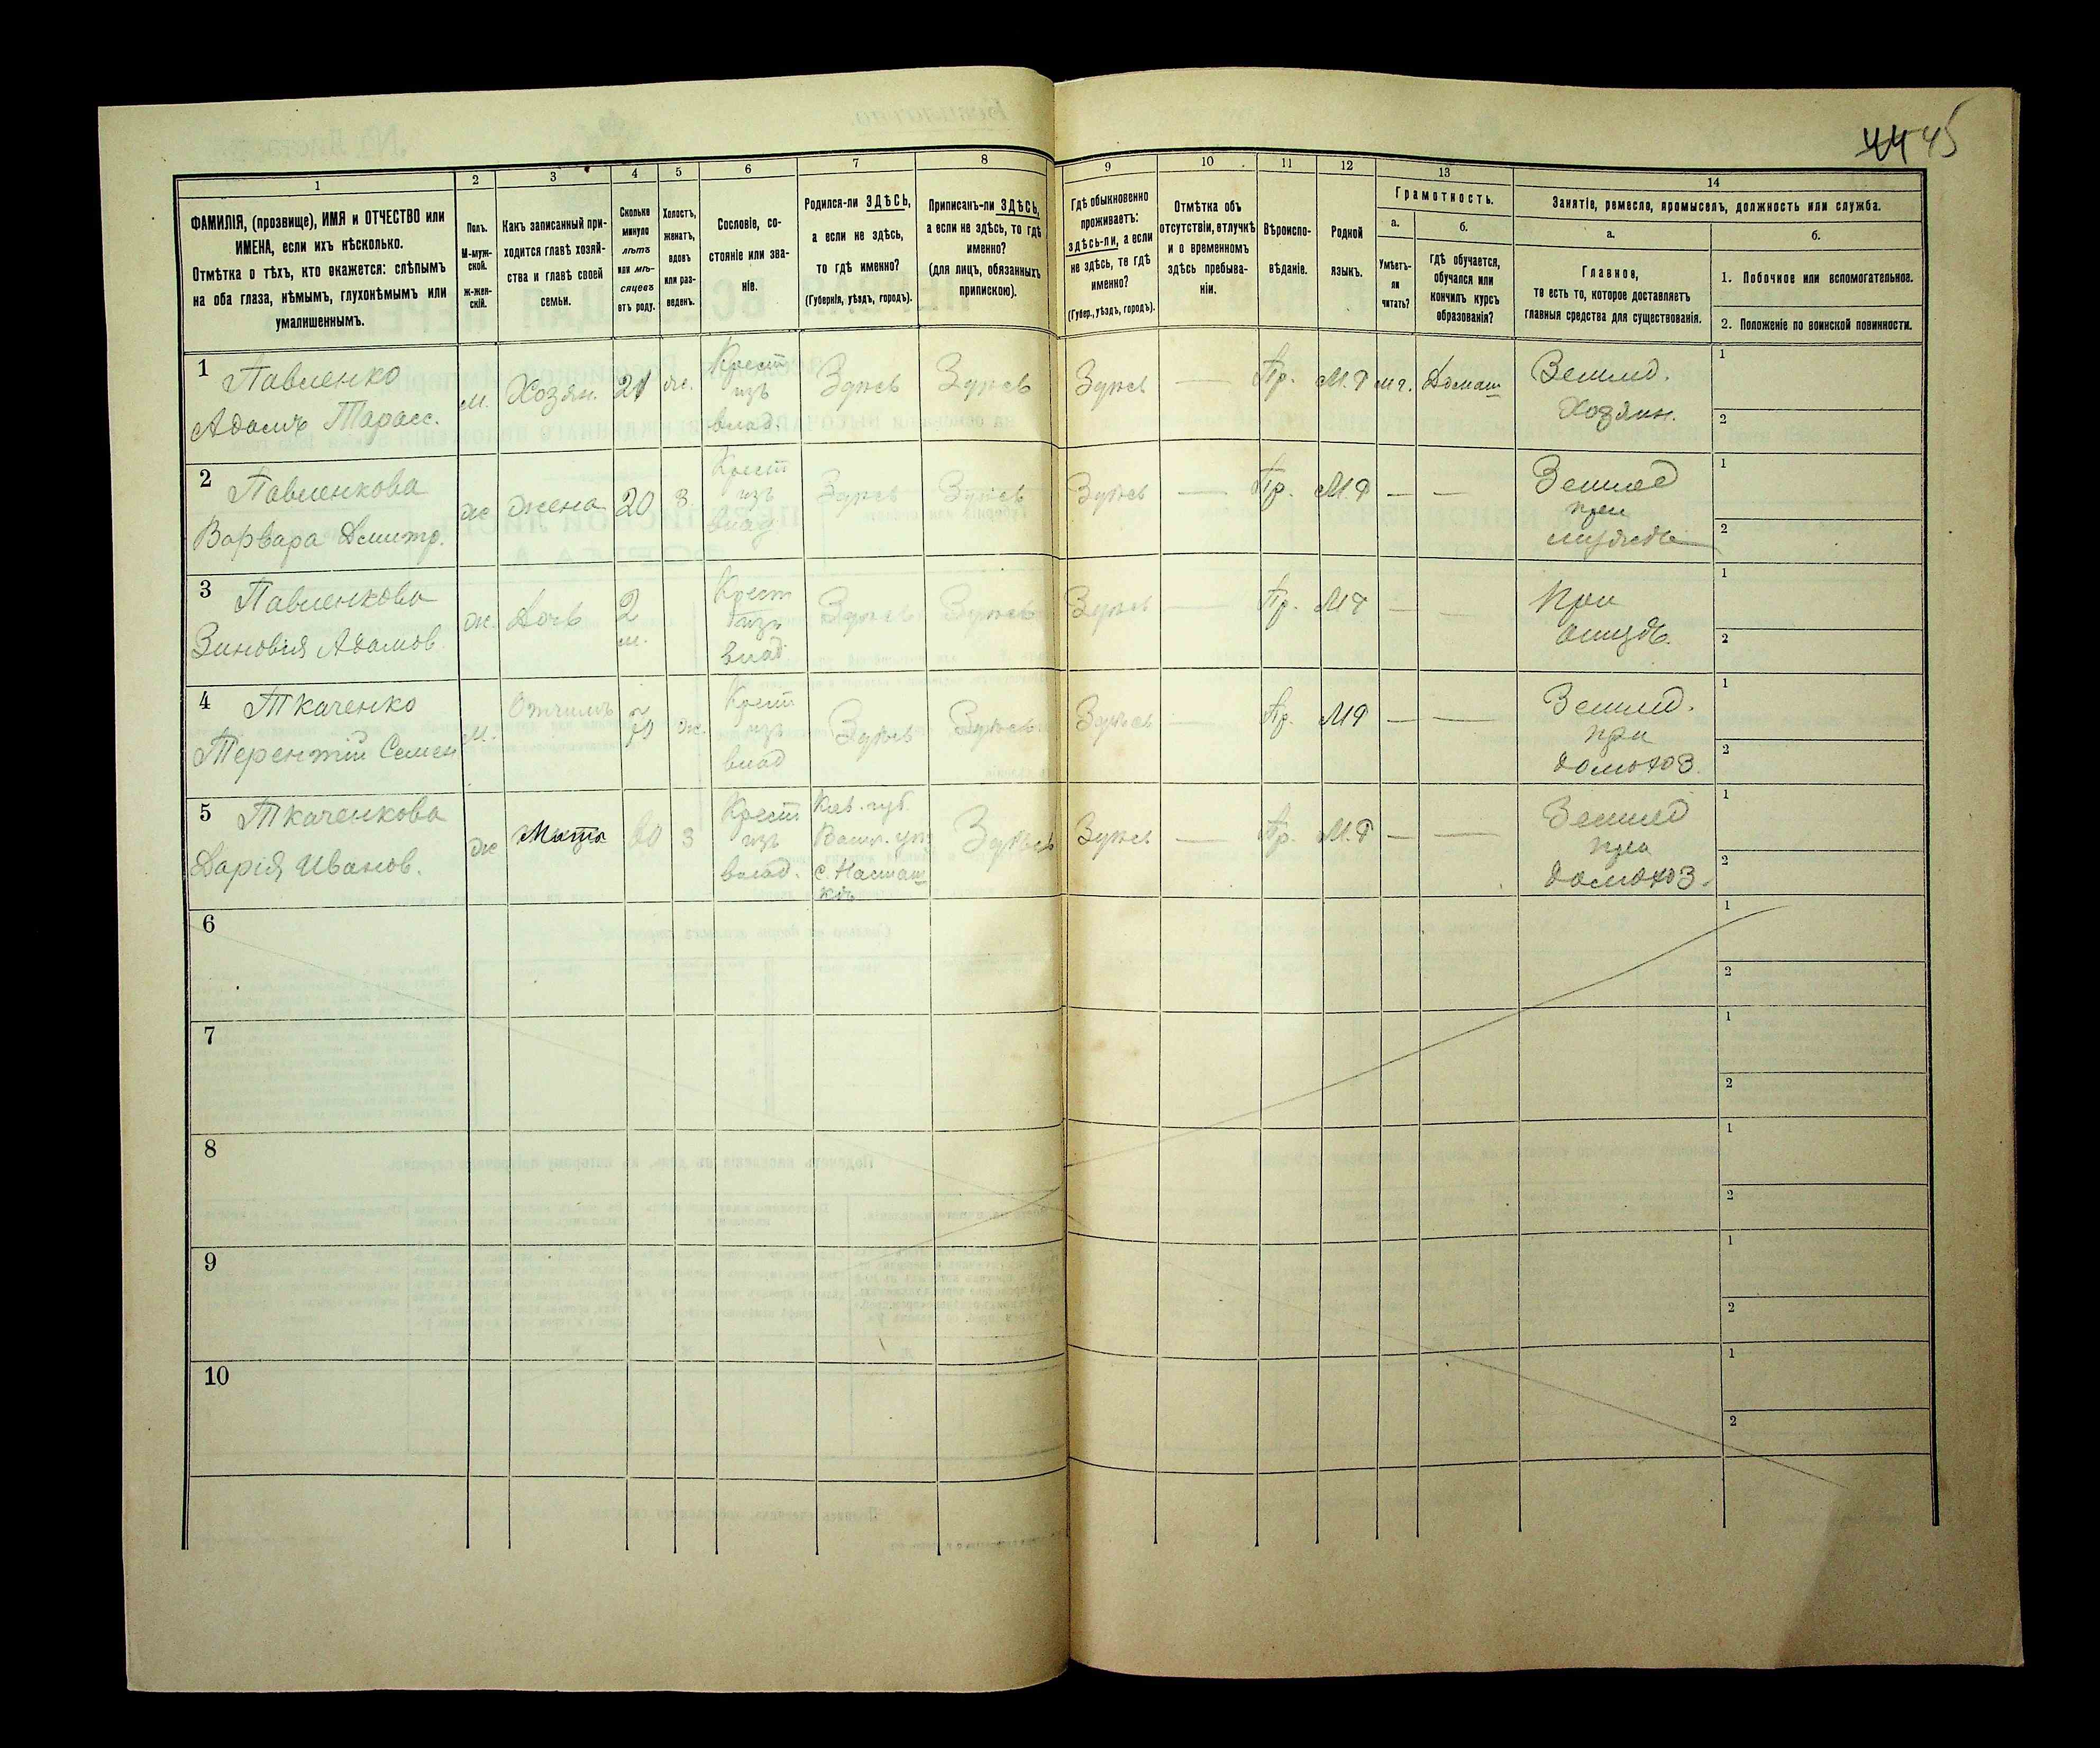 44 45
1
2
3
4
5
6
7
8
9
10
11
12
13
14
ФАМИЛІЯ, (прозвище), ИМЯ и ОТЧЕСТВО или
ИМЕНА, если ихъ нѣсколько.
Отмѣтка о тѣхъ, кто окажется: слѣпымъ
на оба глаза, нѣмымъ, глухонѣмымъ или
умалишеннымъ.
Полъ.
М-муж-
ской.
Ж-жен-
скій.
Какъ записанный при-
ходится главѣ хозяй-
ства и главѣ своей
семьи.
Сколько
минуло
лѣтъ
или мѣ-
сяцевъ
отъ роду.
Холостъ,
женатъ,
вдовъ
или раз-
веденъ.
Сословіе, со-
стояніе или зва-
ніе.
Родился-ли ЗДѢСЬ,
а если не здѣсь,
то гдѣ именно?
(Губернія, уѣздъ, городъ).
Приписанъ-ли ЗДѢСЬ,
а если не здѣсь, то гдѣ
именно?
(для лицъ, обязанныхъ
припискою).
Гдѣ обыкновенно
проживаетъ:
здѣсь-ли, а если
не здѣсь, то гдѣ
именно?
(Губер., уѣздъ, городъ).
Отмѣтка объ
отсутствіи, отлучкѣ
и о временномъ
здѣсь пребыва-
ніи.
Вѣроиспо-
вѣданіе.
Родной
языкъ.
Грамотность.
а.
Умѣетъ-
ли
читать?
б.
гдѣ обучается,
обучался или
кончилъ курсъ
образованія?
Занятіе, ремесло, промыселъ, должность или служба.
а.
Главное,
то есть то, которое доставляетъ
главныя средства для существованія.
б.
1. Побочное или вспомогательное.
2. Положеніе по воинской повинности.
1 Павленко
Адамъ Тарасс.
м.
Хозян.
21
ж.
Крест
изъ
влад.
Здѣсь
Здѣсь
Здѣсь
—
Пр.
М.Р
Домаш
Землед.
Хозяин.
1
2
2 Павленкова
Варвара Дмитр.
ж
жена
20
З
Крест
изъ
влад
Здѣсь
Здѣсь
Здѣсь
—
Пр.
М.Р
—
—
Землед
при
мужѣ
1
2
3 Павленкова
Зиновія Адамов
ж.
Дочь
2
м.
Крест
изъ
влад
Здѣсь
Здѣсь
Здѣсь
—
Пр.
МР
—
—
При
отцѣ.
1
2
4 Ткаченко
Терентій Семен
м.
Отчимъ
ж.
Крест
изъ
влад
Здѣсь
Здѣсь
Здѣсь
—
Пр.
МР
—
—
Землед.
при
домохоз.
1
2
5 Ткаченкова
Дарія Иванов.
ж
Мать
60
З
Крест
изъ
влад.
Кіев. губ.
Васил. уѣз
с. Насташ
ка
Здѣсь
Здѣсь
—
Пр.
М.Р
—
—
Землед
при
домохоз.
1
2
6
1
2
7
1
2
8
1
2
9
1
2
10
1
2